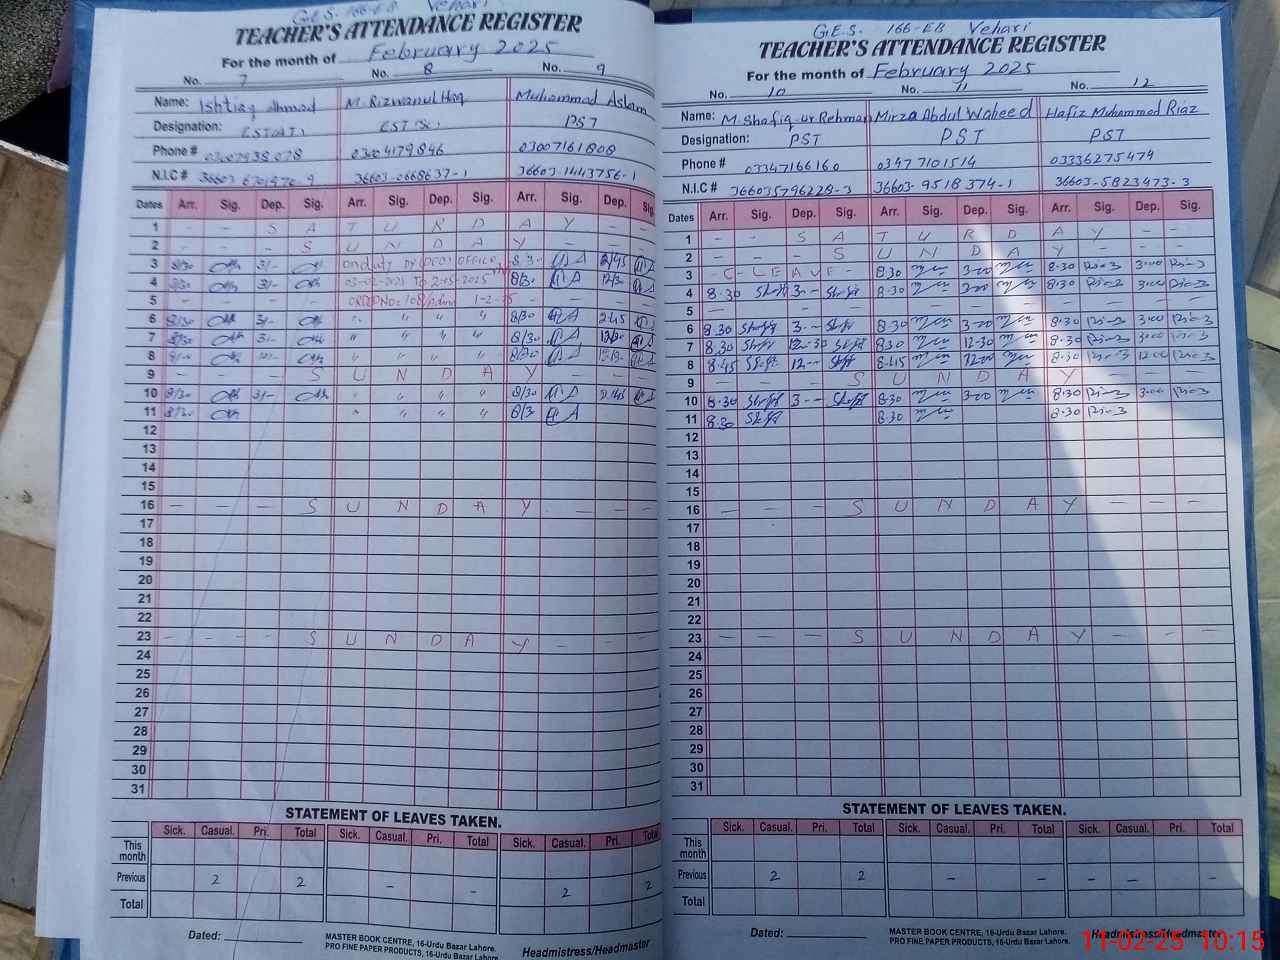 G.E.S. 166-EB Vehari
TEACHER'S ATTENDANCE REGISTER
For the month of February 2025
No. 7 No. 8 No. 9
Name: Ishtiaq Ahmad M. Rizwanul Haq Muhammad Aslam
Designation: PST
Phone # 03004179846 03007161808
N.I.C # 36603-0668637-1 36603-1443756-1
Dates Arr. Sig. Dep. Sig. Arr. Sig. Dep. Sig. Arr. Sig. Dep. Sig.
1 - - S A T U R D A Y - -
2 - - - S U N D A Y - - -
3 8/30 3/- On duty by 8/30 2/45
4 8/30 3/- 03-02-2025 To 8/30
5 - - - - 1-2-25 - - - -
6 8/30 3/- " " " 8/30 2:45
7 8/30 3/- " " " 8/30 12/30
8 " " " 8/30
9 - - - S U N D A Y - - -
10 8/30 3/- " " " 8/30 2/45
11 8/30 " " " 8/30
12
13
14
15
16 - - - S U N D A Y - - -
17
18
19
20
21
22
23 - - - S U N D A Y - - -
24
25
26
27
28
29
30
31
STATEMENT OF LEAVES TAKEN.
Sick. Casual. Pri. Total Sick. Casual. Pri. Total Sick. Casual. Pri. Total
This month
Previous 2 2 - - 2 2
Total
Dated:
MASTER BOOK CENTRE, 16-Urdu Bazar Lahore.
PRO FINE PAPER PRODUCTS, 16-Urdu Bazar Lahore.
Headmistress/Headmaster
G.E.S. 166-EB Vehari
TEACHER'S ATTENDANCE REGISTER
For the month of February 2025
No. 10 No. 11 No. 12
Name: M. Shafiq ur Rehman Mirza Abdul Waheed Hafiz Muhammad Riaz
Designation: PST PST PST
Phone # 03347166160 03477101514 03336275474
N.I.C # 366035796229-3 36603-9518374-1 36603-5823473-3
Dates Arr. Sig. Dep. Sig. Arr. Sig. Dep. Sig. Arr. Sig. Dep. Sig.
1 - - S A T U R D A Y - -
2 - - - S U N D A Y - - -
3 - C - LEAVE - 8.30 3.00 8.30 3.00
4 8.30 3-- 8.30 3.00 8.30 3.00
5 - - - - - - - - - - - -
6 8.30 3-- 8.30 3.00 8.30 3.00
7 8.30 12-30 8.30 12.30 8.30 3.00
8 8.45 12-- 8.45 12.00 8.30 12.00
9 - - - S U N D A Y - - -
10 8.30 3-- 8.30 3.00 8.30 3.00
11 8.30 8.30 8.30
12
13
14
15
16 - - - S U N D A Y - - -
17
18
19
20
21
22
23 - - - S U N D A Y - - -
24
25
26
27
28
29
30
31
STATEMENT OF LEAVES TAKEN.
Sick. Casual. Pri. Total Sick. Casual. Pri. Total Sick. Casual. Pri. Total
This month
Previous 2 2 - - - - -
Total
Dated:
MASTER BOOK CENTRE, 16-Urdu Bazar Lahore.
PRO FINE PAPER PRODUCTS, 16-Urdu Bazar Lahore.
Headmistress/Headmaster
11-02-25 10:15